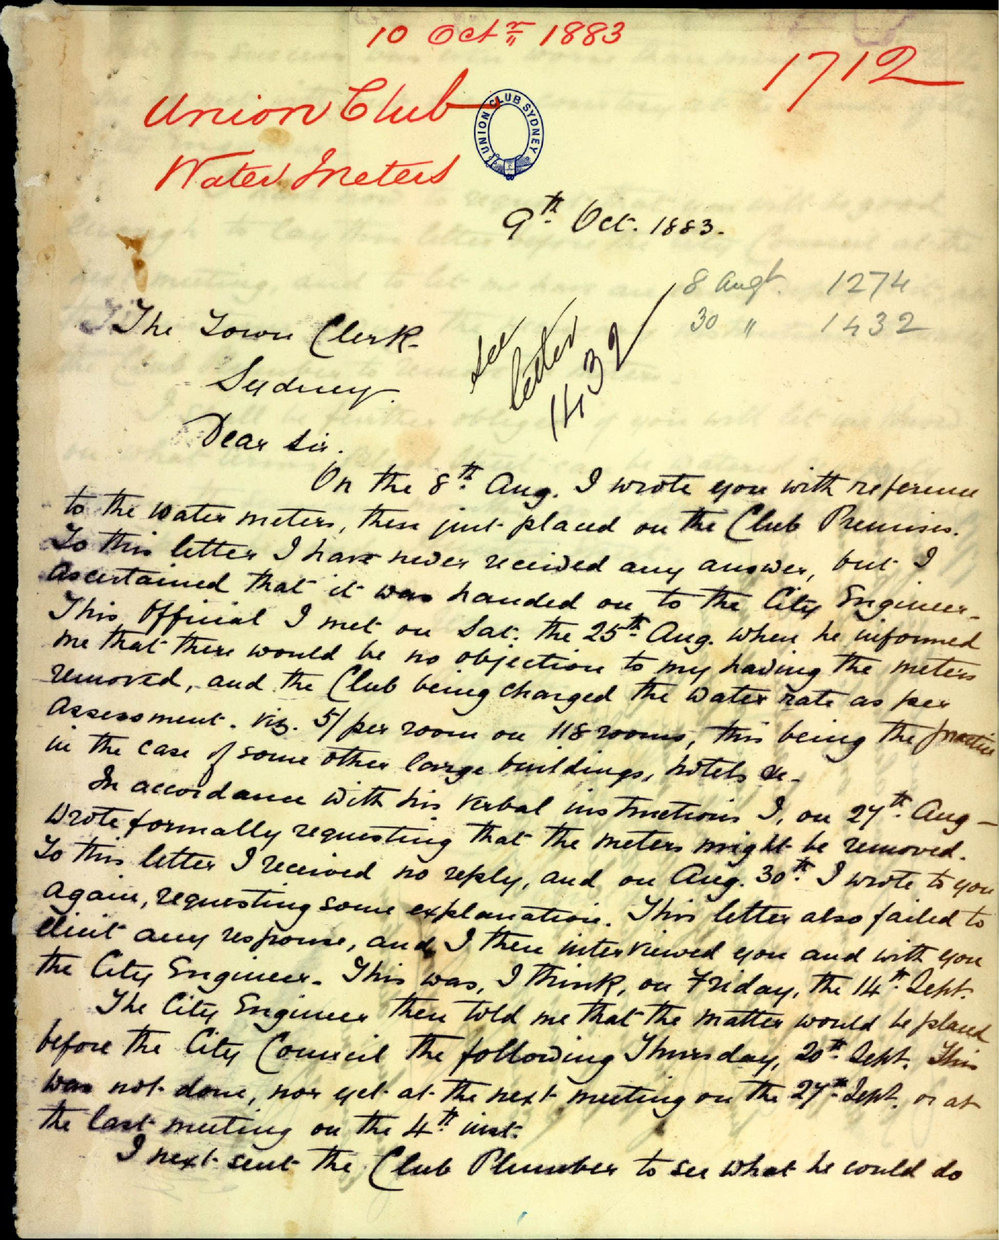 10 Octr 1883
1712
Union Club
Water Meters
UNION CLUB SYDNEY
9th Oct. 1883.
8 Augt. 1274
30 " 1432
see letter 1432
The Town Clerk
Sydney.
Dear Sir.
On the 8th Aug. I wrote you with reference
to the water meters, then just placed on the Club Premises.
To this letter I have never received any answer, but I
ascertained that it was handed on to the City Engineer.
This official I met on Sat. the 25th Aug. when he informed
me that there would be no objection to my having the meters
removed, and the Club being charged the water rate as per
assessment. viz. 5/ per room on 118 rooms, this being the practice
in the case of some other large buildings, hotels &c-
In accordance with his verbal instructions I, on 27th Aug-
wrote formally requesting that the meters might be removed.
To this letter I received no reply, and on Aug. 30th I wrote to you
again, requesting some explanation. This letter also failed to
elicit any response, and I then interviewed you and with you
the City Engineer. This was, I think, on Friday, the 14th Sept.
The City Engineer then told me that the matter would be placed
before the City Council the following Thursday, 20th Sept. This
was not done, nor yet at the next meeting on the 27th Sept. or at
the last meeting on the 4th inst.
I next sent the Club Plumber to see what he could do